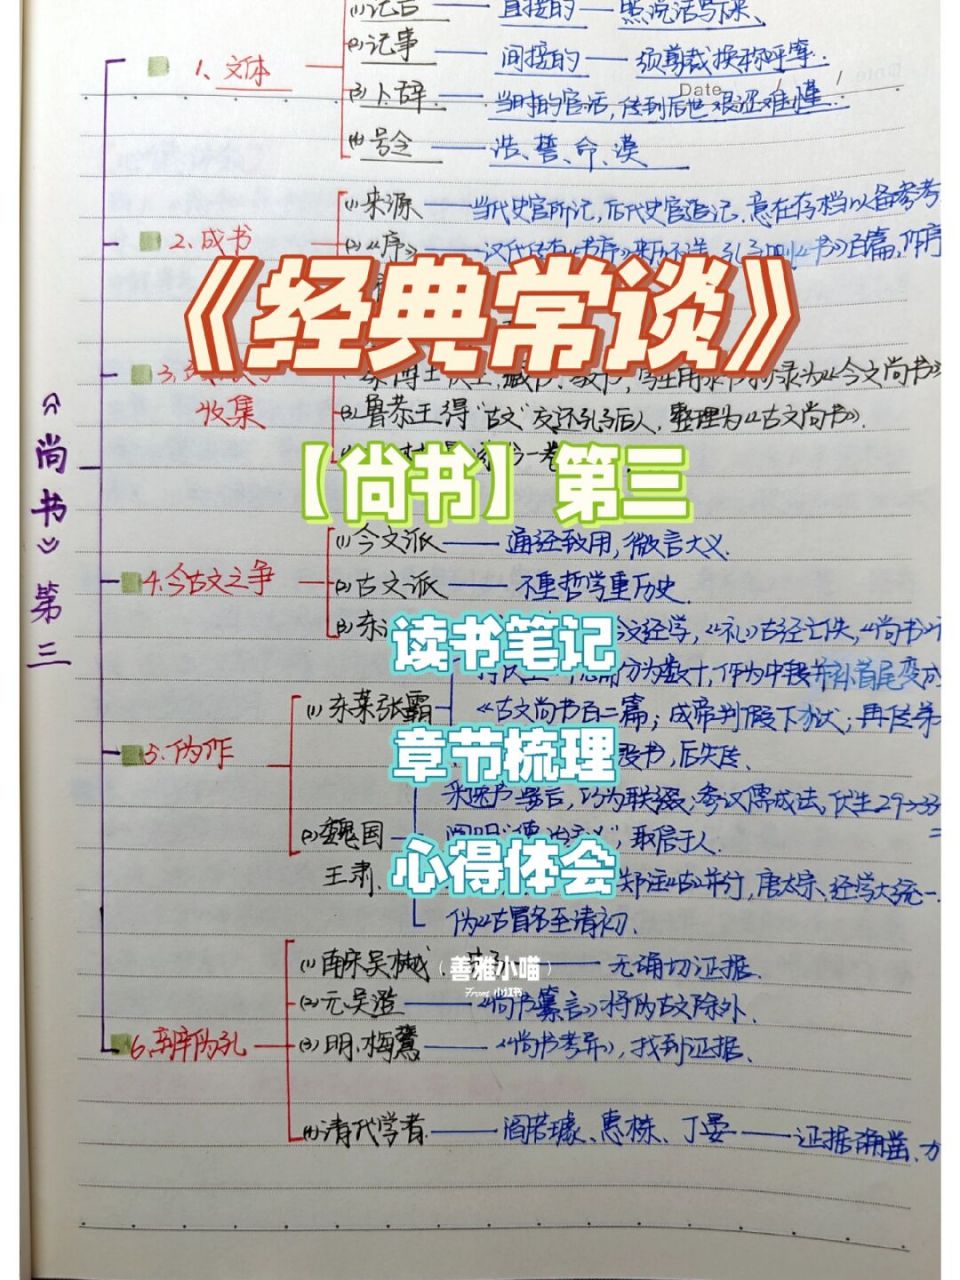 (1)记言 —— 直接的 —— 照说话写下来、
1、文体 (2)记事 —— 间接的 —— 须剪裁换称呼等.
Date / /
(3)卜辞 —— 当时的官话,传到后世艰涩难懂.
(4)号令 —— 浩、誓、命、谟
(1)来源 —— 当代史官所记,后代史官追记、意在存档以备参考
2.成书 (2)《序》—— 汉代传有《书序》来历不详,孔子删《书》百篇,作序
《经典常谈》
3. 收集
录为《今文尚书》
(3)鲁恭王得"古文"交还孔子后人,整理为《古文尚书》.
一卷
【尚书】第三
《尚书》第三
(1)今文派 —— 通经致用,微言大义.
4.今古文之争 (2)古文派 —— 不重哲学重历史.
(3)东 今文经学,《礼》古经亡失,《尚书》
读书笔记
分为数十,作为中段并补首尾变成
(1)东莱张霸 《古文尚书百二篇;成帝判假下狱;再传弟
5.伪作 章节梳理 没书,后失传.
采 伏生29→33
(2)魏国王肃 ,取信于人.
心得体会
郑注《古》并行,唐太宗、经学大统一.
伪《古》冒名至清初.
(1)南宋吴棫 —— 无确切证据.
善雅小喵
From 小红书
(2)元.吴澄 —— 《尚书纂言》将伪古文除外.
6.辨伪孔 (3)明.梅鷟 —— 《尚书考异》,找到证据.
(4)清代学者 —— 阎若璩、惠栋、丁晏 —— 证据确凿.